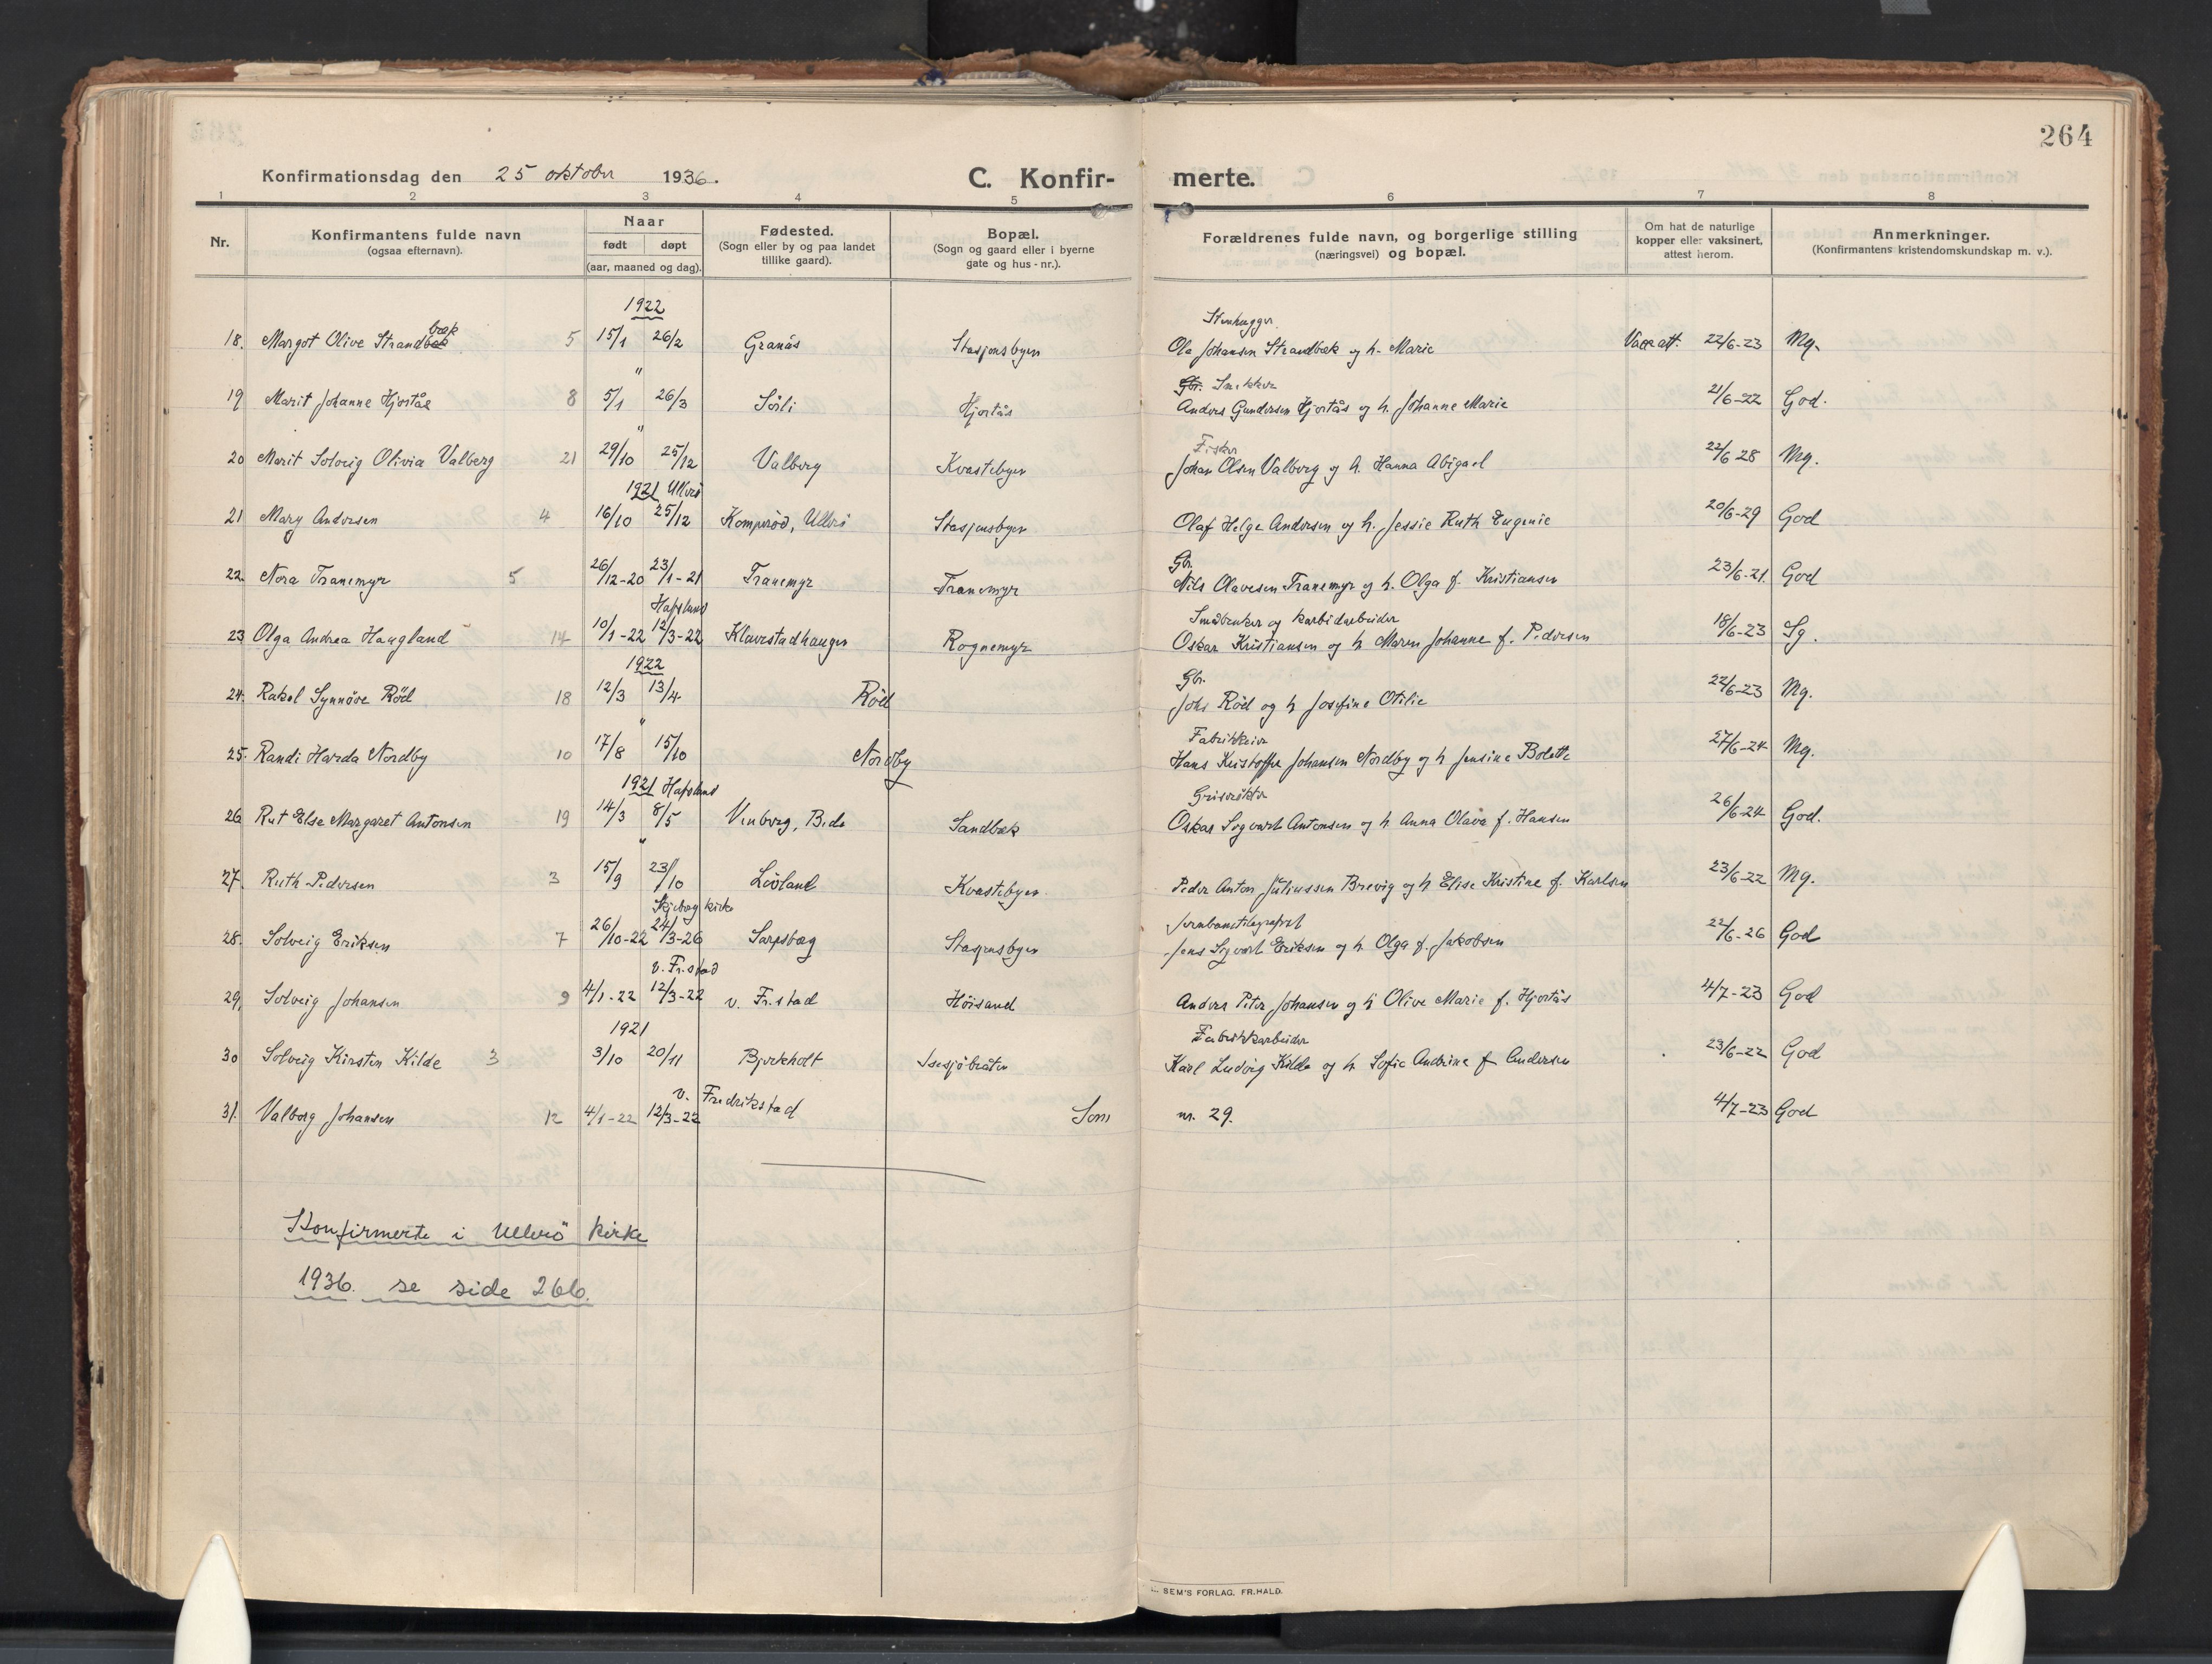 264
Konfirmationsdag den 25 oktober 1936. C. Konfir- merte.
1 2 3 4 5 6 7 8
Nr.
Konfirmantens fulde navn
(ogsaa efternavn).
Naar
født døpt
(aar, maaned og dag).
Fødested.
(Sogn eller by og paa landet
tillike gaard).
Bopæl.
(Sogn og gaard eller i byerne
gate og hus-nr.).
Forældrenes fulde navn, og borgerlige stilling
(næringsvei) og bopæl.
Om hat de naturlige
kopper eller vaksinert,
attest herom.
Anmerkninger.
(Konfirmantens kristendomskundskap m. v.).
1922 Stenhugger
18. Margot Olive Strandbæk 5 15/1 26/2 Granås Stasjonsbyen Ola Johansen Strandbæk og h. Marie Vacc att. 22/6-23 Mg.
" Gbr. Snekker
19 Marit Johanne Hjortås 8 5/1 26/3 Sörli Hjortås Anders Gundersen Hjortås og h. Johanne Marie 21/6-22 God.
" Fisker
20 Marit Solveig Olivia Valberg 21 29/10 25/12 Valberg Kvastebyen Johan Olsen Valberg og h. Hanna Abigael 22/6 28 Mg.
1921 Ullerö
21 Mary Andersen 4 16/10 25/12 Komperöd, Ullerö Stasjonsbyen Olaf Helge Andersen og h. Jessie Ruth Eugenie 20/6-29 God
Gbr.
22. Nora Tranemyr 5 26/12-20 23/1-21 Tranemyr Tranemyr Nils Olavesen Tranemyr og h. Olga f. Kristiansen 23/6-21. God
Hafslund Småbruker og karbidarbeider
23 Olga Andrea Haugland 14 10/1-22 12/3-22 Klavestadhaugen Rognemyr Oskar Kristiansen og h Maren Johanne f. Pedersen 18/6-23 Sg.
1922 Gbr.
24. Rakel Synnöve Röd 18 12/3 13/4 Röd Johs Röd og h Josefine Otilie 22/6-23 Mg.
" Fabrikkeier
25. Randi Harda Nordby 10 17/8 15/10 Nordby Hans Kristoffer Johansen Nordby og h Jensine Bolette 27/6-24 Mg.
1921 Hafslund Griserökter
26 Rut Else Margaret Antonsen 19 14/3 8/5 Venberg, Sandbæk Oskar Sigvart Antonsen og h Anna Olava f. Hansen 26/6-24 God.
"
27. Ruth Pedersen 3 15/9 23/10 Lövland Kvastebyen Peder Anton Juliussen Brevig og h Elise Kristine f. Karlsen 23/6-22 Mg.
Skjeberg kirke Jernbanetelegrafist
28. Solveig Eriksen 7 26/10-22 24/3-26 Sarpsborg Stasjonsbyen Jens Sigvart Eriksen og h. Olga f. Jakobsen 22/6-26 God
v. Fr.stad
29. Solveig Johansen 9 4/1-22 12/3-22 v. Fr.stad Höisand Anders Peter Johansen og h Olive Marie f. Hjortås 4/7-23 God
1921 Fabrikkarbeider
30 Solveig Kirsten Kilde 3 3/10 20/11 Bjerkholt Isesjöbråten Karl Ludvig Kilde og h Sofie Andrine f Andersen 23/6-22 God
v. Fredrikstad
31. Valborg Johansen 12 4/1-22 12/3-22 Som nr. 29. 4/7-23 God
Konfirmerte i Ullerö kirke
1936. se side 266.
SEM'S FORLAG. FR.HALD.